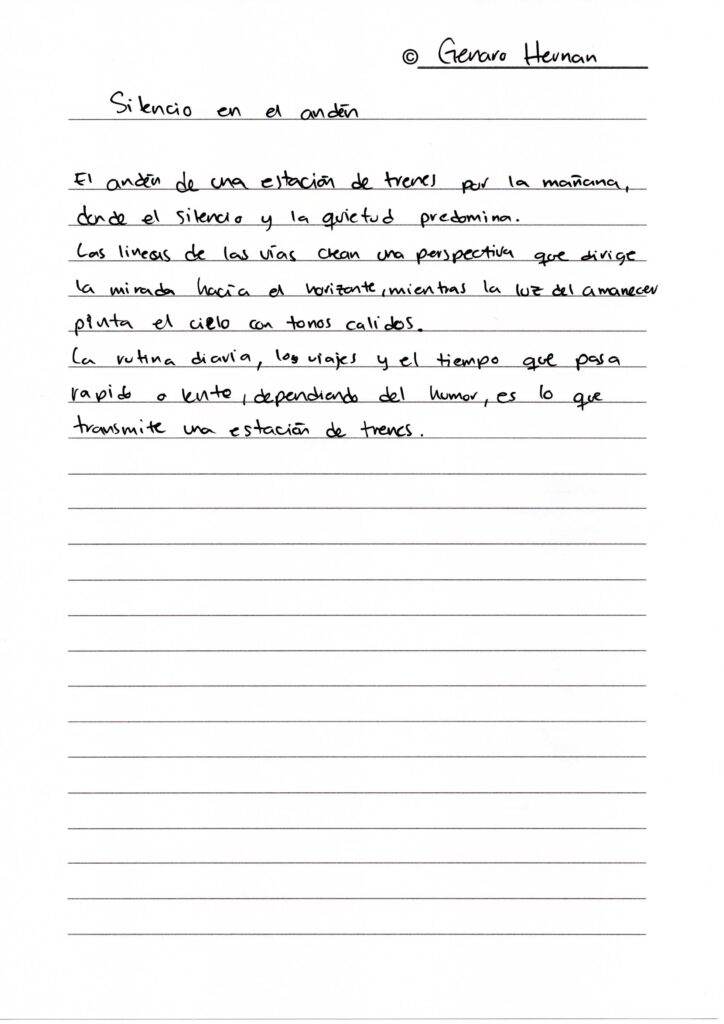 © Genaro Hernan
Silencio en el andén
El andén de una estación de trenes por la mañana,
donde el silencio y la quietud predomina.
Las lineas de las vías crean una perspectiva que dirige
la mirada hacía el horizonte, mientras la luz del amanecer
pinta el cielo con tonos calidos.
La rutina diaria, los viajes y el tiempo que pasa
rapido o lento, dependiendo del humor, es lo que
transmite una estación de trenes.